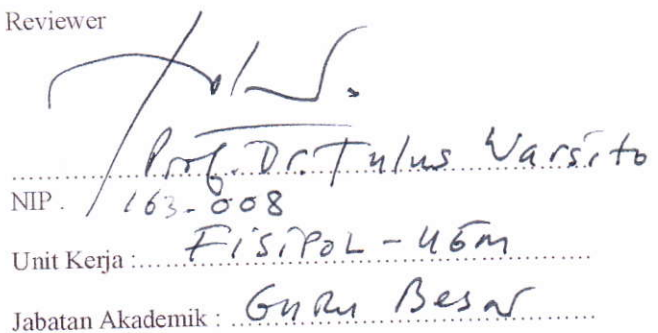 Reviewer
Prof. Dr. Tulus Warsito
NIP . 163-008
Unit Kerja : FISIPOL - UGM
Jabatan Akademik : Guru Besar